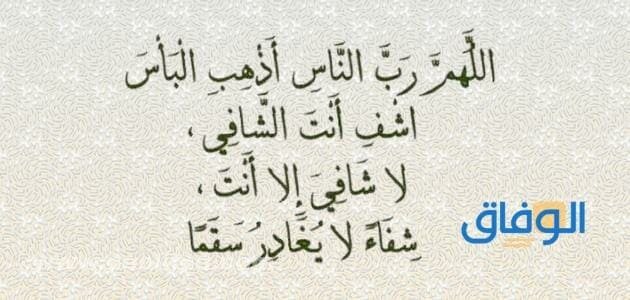 اللَّهُمَّ رَبَّ النَّاسِ أَذْهِبِ الْبَأْسَ
اشْفِ أَنْتَ الشَّافِي،
لا شَافِيَ إِلا أَنْتَ،
شِفَاءً لا يُغَادِرُ سَقَمًا
الوفاق